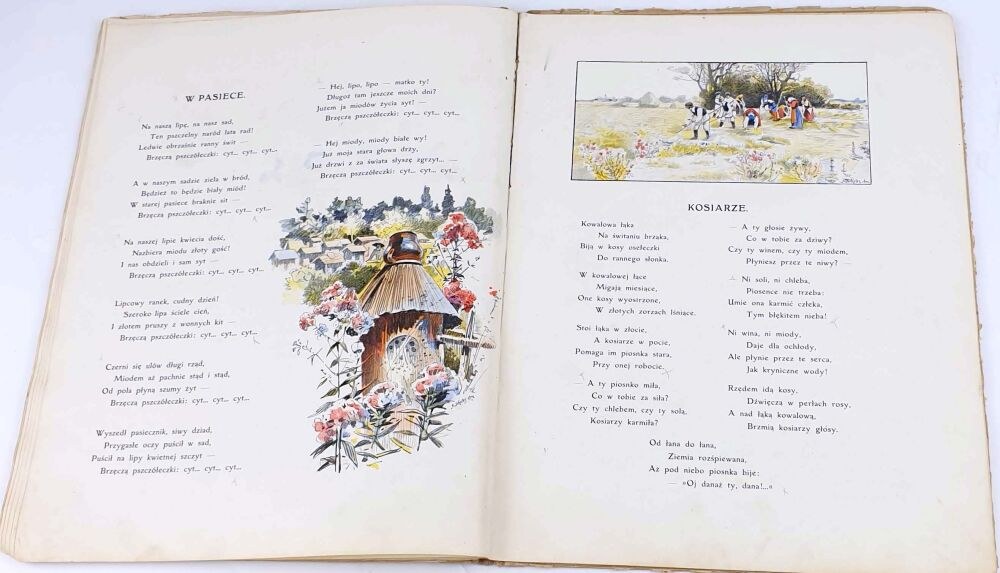 W PASIECE.
Na naszą lipę, na nasz sad,
Ten pszczelny naród lata rad!
Ledwie obrzaśnie ranny świt —
Brzęczą pszczółeczki: cyt... cyt... cyt...
A w naszym sadzie ziela w bród,
Będzież to będzie biały miód!
W starej pasiece braknie sit —
Brzęczą pszczółeczki: cyt... cyt... cyt...
Na naszej lipie kwiecia dość,
Nazbiera miodu złoty gość!
I nas obdzieli i sam syt —
Brzęczą pszczółeczki: cyt... cyt... cyt...
Lipcowy ranek, cudny dzień!
Szeroko lipa ściele cień,
I złotem pruszy z wonnych kit —
Brzęczą pszczółeczki: cyt... cyt... cyt...
Czerni się ulów długi rząd,
Miodem aż pachnie stąd i stąd,
Od pola płyną szumy żyt —
Brzęczą pszczółeczki: cyt... cyt... cyt...
Wyszedł pasiecznik, siwy dziad,
Przygasłe oczy puścił w sad,
Puścił na lipy kwietnej szczyt —
Brzęczą pszczółeczki: cyt... cyt... cyt...
— Hej, lipo, lipo — matko ty!
Długoż tam jeszcze moich dni?
Jużem ja miodów życia syt! —
Brzęczą pszczółeczki: cyt... cyt... cyt...
— Hej miody, miody białe wy!
Już moja stara głowa drzy,
Już drzwi z za świata słyszę zgrzyt... —
Brzęczą pszczółeczki: cyt... cyt... cyt...
KOSIARZE.
Kowalowa łąka
Na świtaniu brzaka,
Biją w kosy osełeczki
Do rannego słonka.
W kowalowej łące
Migają miesiące,
One kosy wyostrzone,
W złotych zorzach lśniące.
Stoi łąka w złocie,
A kosiarze w pocie,
Pomaga im piosnka stara,
Przy onej robocie.
— A ty piosnko miła,
Co w tobie za siła?
Czy ty chlebem, czy ty solą,
Kosiarzy karmiła?
— A ty głosie żywy,
Co w tobie za dziwy?
Czy ty winem, czy ty miodem,
Płyniesz przez te niwy? —
— Ni soli, ni chleba,
Piosence nie trzeba:
Umie ona karmić człeka,
Tym błękitem nieba!
Ni wina, ni miody,
Daje dla ochłody,
Ale płynie przez te serca,
Jak kryniczne wody!
Rzędem idą kosy,
Dźwięczą w perłach rosy,
A nad łąką kowalową,
Brzmią kosiarzy głosy.
Od łana do łana,
Ziemia rozśpiewana,
Aż pod niebo piosnka bije:
— »Oj danaż ty, dana!...«